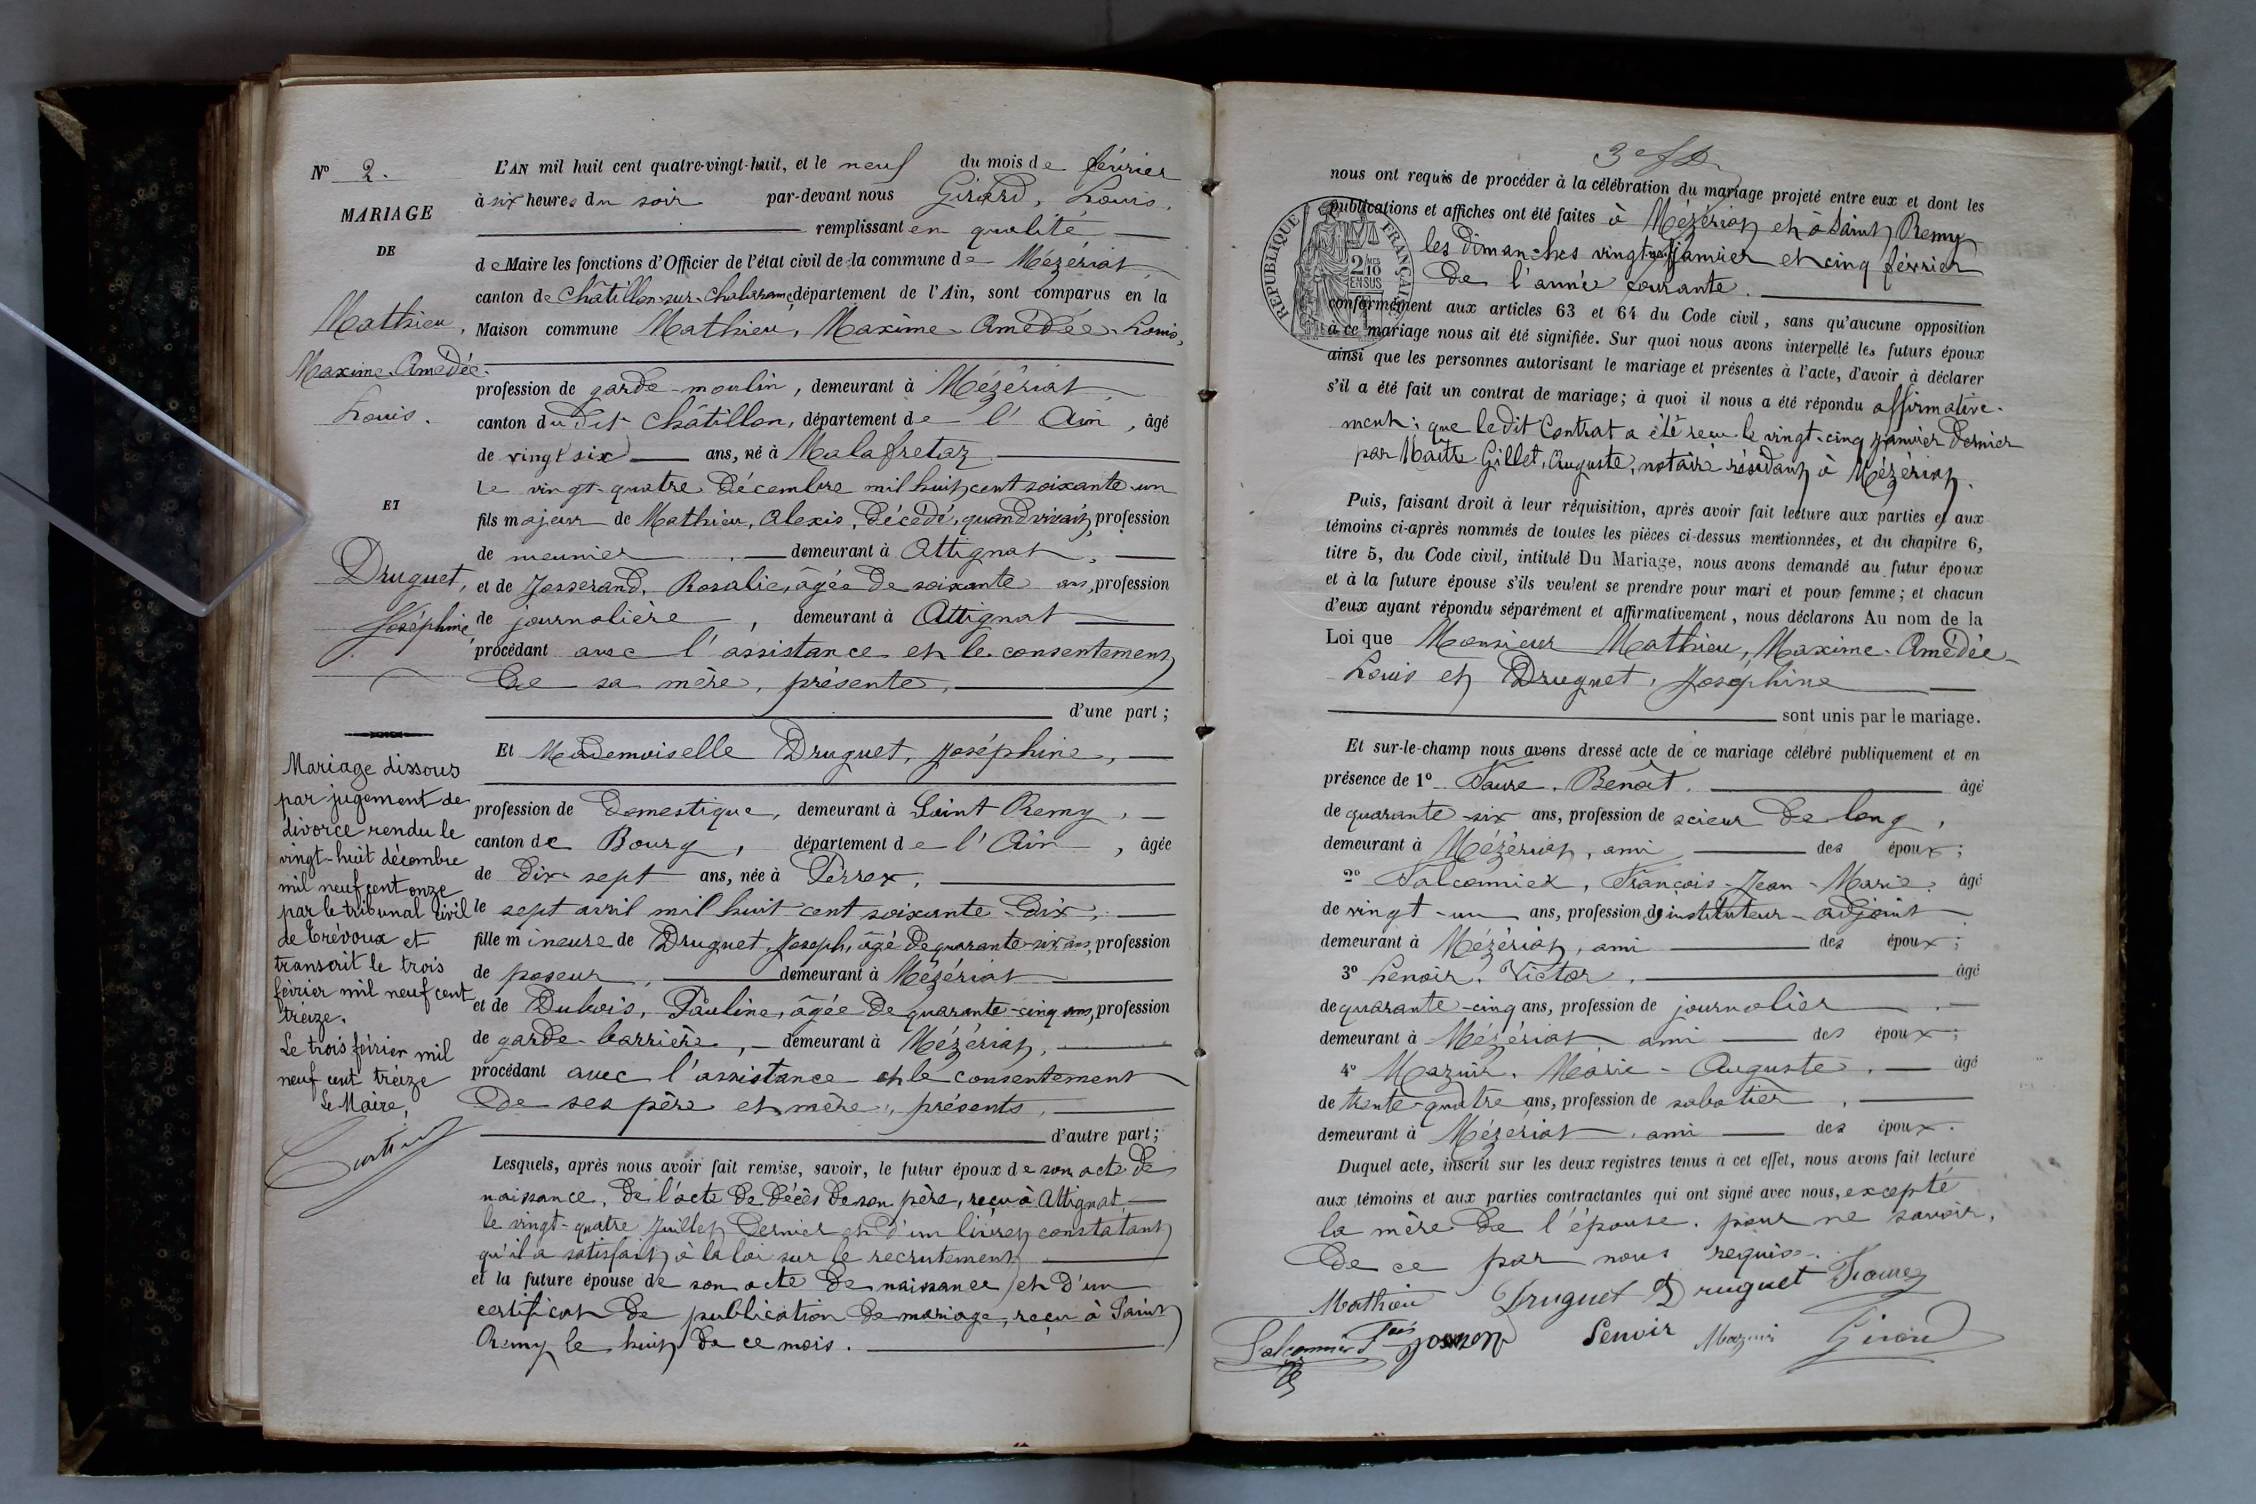 N° 2.
MARIAGE
DE
Mathieu,
Maxime-Amédée-
Louis.
ET
Druguet,
Joséphine,
Mariage dissous
par jugement de
divorce rendu le
vingt-huit décembre
mil neuf cent onze
par le tribunal civil
de Trévoux et
transcrit le trois
février mil neuf cent
treize.
Le trois février mil
neuf cent treize
Le Maire,
L'AN mil huit cent quatre-vingt-huit, et le neuf du mois de février
à six heures du soir par-devant nous Girard, Louis,
remplissant en qualité
de Maire les fonctions d'Officier de l'état civil de la commune de Mézériat,
canton de Châtillon-sur-Chalaronne département de l'Ain, sont comparus en la
Maison commune Mathieu, Maxime-Amédée-Louis,
profession de garde-moulin, demeurant à Mézériat,
canton du dit Châtillon, département de l'Ain, âgé
de vingt six ans, né à Malafretaz
le vingt-quatre décembre mil huit cent soixante-un
fils majeur de Mathieu, Alexis, décédé, quand vivait, profession
de meunier, demeurant à Attignat,
et de Josserand, Rosalie, âgée de soixante ans, profession
de journalière, demeurant à Attignat
procédant avec l'assistance et le consentement
de sa mère, présente,
d'une part;
Et Mademoiselle Druguet, Joséphine,
profession de domestique, demeurant à Saint-Remy,
canton de Bourg, département de l'Ain, âgée
de dix-sept ans, née à Perrex,
le sept avril mil huit cent soixante-dix,
fille mineure de Druguet, Joseph, âgé de quarante-six ans, profession
de poseur, demeurant à Mézériat
et de Dubois, Pauline, âgée de quarante-cinq ans, profession
de garde-barrière, demeurant à Mézériat,
procédant avec l'assistance et le consentement
de ses père et mère, présents,
d'autre part;
Lesquels, après nous avoir fait remise, savoir, le futur époux de son acte de
naissance, de l'acte de décès de son père, reçu à Attignat
le vingt-quatre juillet dernier et d'un livret constatant
qu'il a satisfait à la loi sur le recrutement
et la future épouse de son acte de naissance et d'un
certificat de publication de mariage, reçu à Saint
Remy le huit de ce mois.
3e
REPUBLIQUE FRANÇAISE
2/10 EN SUS
nous ont requis de procéder à la célébration du mariage projeté entre eux et dont les
publications et affiches ont été faites à Mézériat et à Saint Remy
les dimanches vingt-neuf janvier et cinq février
de l'année courante.
conformément aux articles 63 et 64 du Code civil, sans qu'aucune opposition
à ce mariage nous ait été signifiée. Sur quoi nous avons interpellé les futurs époux
ainsi que les personnes autorisant le mariage et présentes à l'acte, d'avoir à déclarer
s'il a été fait un contrat de mariage; à quoi il nous a été répondu affirmative-
ment; que ledit Contrat a été reçu le vingt-cinq janvier dernier
par Maître Gillet, Auguste, notaire résidant à Mézériat.
Puis, faisant droit à leur réquisition, après avoir fait lecture aux parties et aux
témoins ci-après nommés de toutes les pièces ci-dessus mentionnées, et du chapitre 6,
titre 5, du Code civil, intitulé Du Mariage, nous avons demandé au futur époux
et à la future épouse s'ils veulent se prendre pour mari et pour femme; et chacun
d'eux ayant répondu séparément et affirmativement, nous déclarons Au nom de la
Loi que Monsieur Mathieu, Maxime-Amédée-
Louis et Druguet, Joséphine
sont unis par le mariage.
Et sur-le-champ nous avons dressé acte de ce mariage célébré publiquement et en
présence de 1° Faure, Benoît. âgé
de quarante-six ans, profession de scieur de long,
demeurant à Mézériat, ami des époux;
2° Falconnier, François-Jean-Marie, âgé
de vingt-un ans, profession d'instituteur-adjoint
demeurant à Mézériat, ami des époux;
3° Lenoir, Victor, âgé
de quarante-cinq ans, profession de journalier,
demeurant à Mézériat, ami des époux;
4° Mazuir, Marie-Auguste, âgé
de trente-quatre ans, profession de sabotier,
demeurant à Mézériat, ami des époux.
Duquel acte, inscrit sur les deux registres tenus à cet effet, nous avons fait lecture
aux témoins et aux parties contractantes qui ont signé avec nous, excepté
la mère de l'épouse, pour ne savoir,
de ce par nous requise.
Mathieu Druguet Druguet Faure
Falconnier Lenoir Mazuir Girard